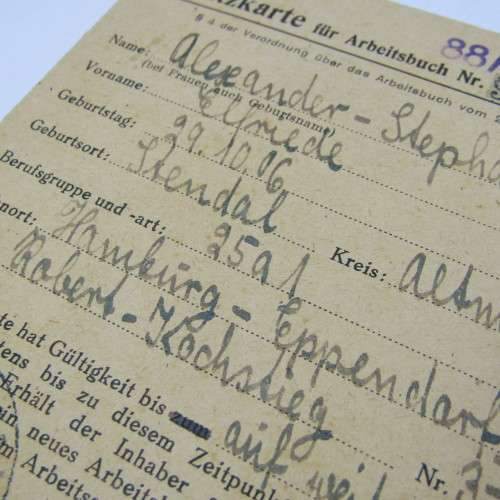 tzkarte für Arbeitsbuch Nr. 88/
§ 4 der Verordnung über das Arbeitsbuch vom
Name: Alexander-Stepha
(bei Frauen auch Geburtsname)
Vorname: Elfriede
Geburtstag: 29.10.06
Geburtsort: Stendal Kreis: Altm
Berufsgruppe und -art: 25a1
nort: Hamburg-Eppendorf
Robert-Kochstieg Nr. 3
te hat Gültigkeit bis zum auf
tens bis zu diesem Zeitpunk
Erhält der Inhaber
ein neues Arbeitsb
m Arbeitsam